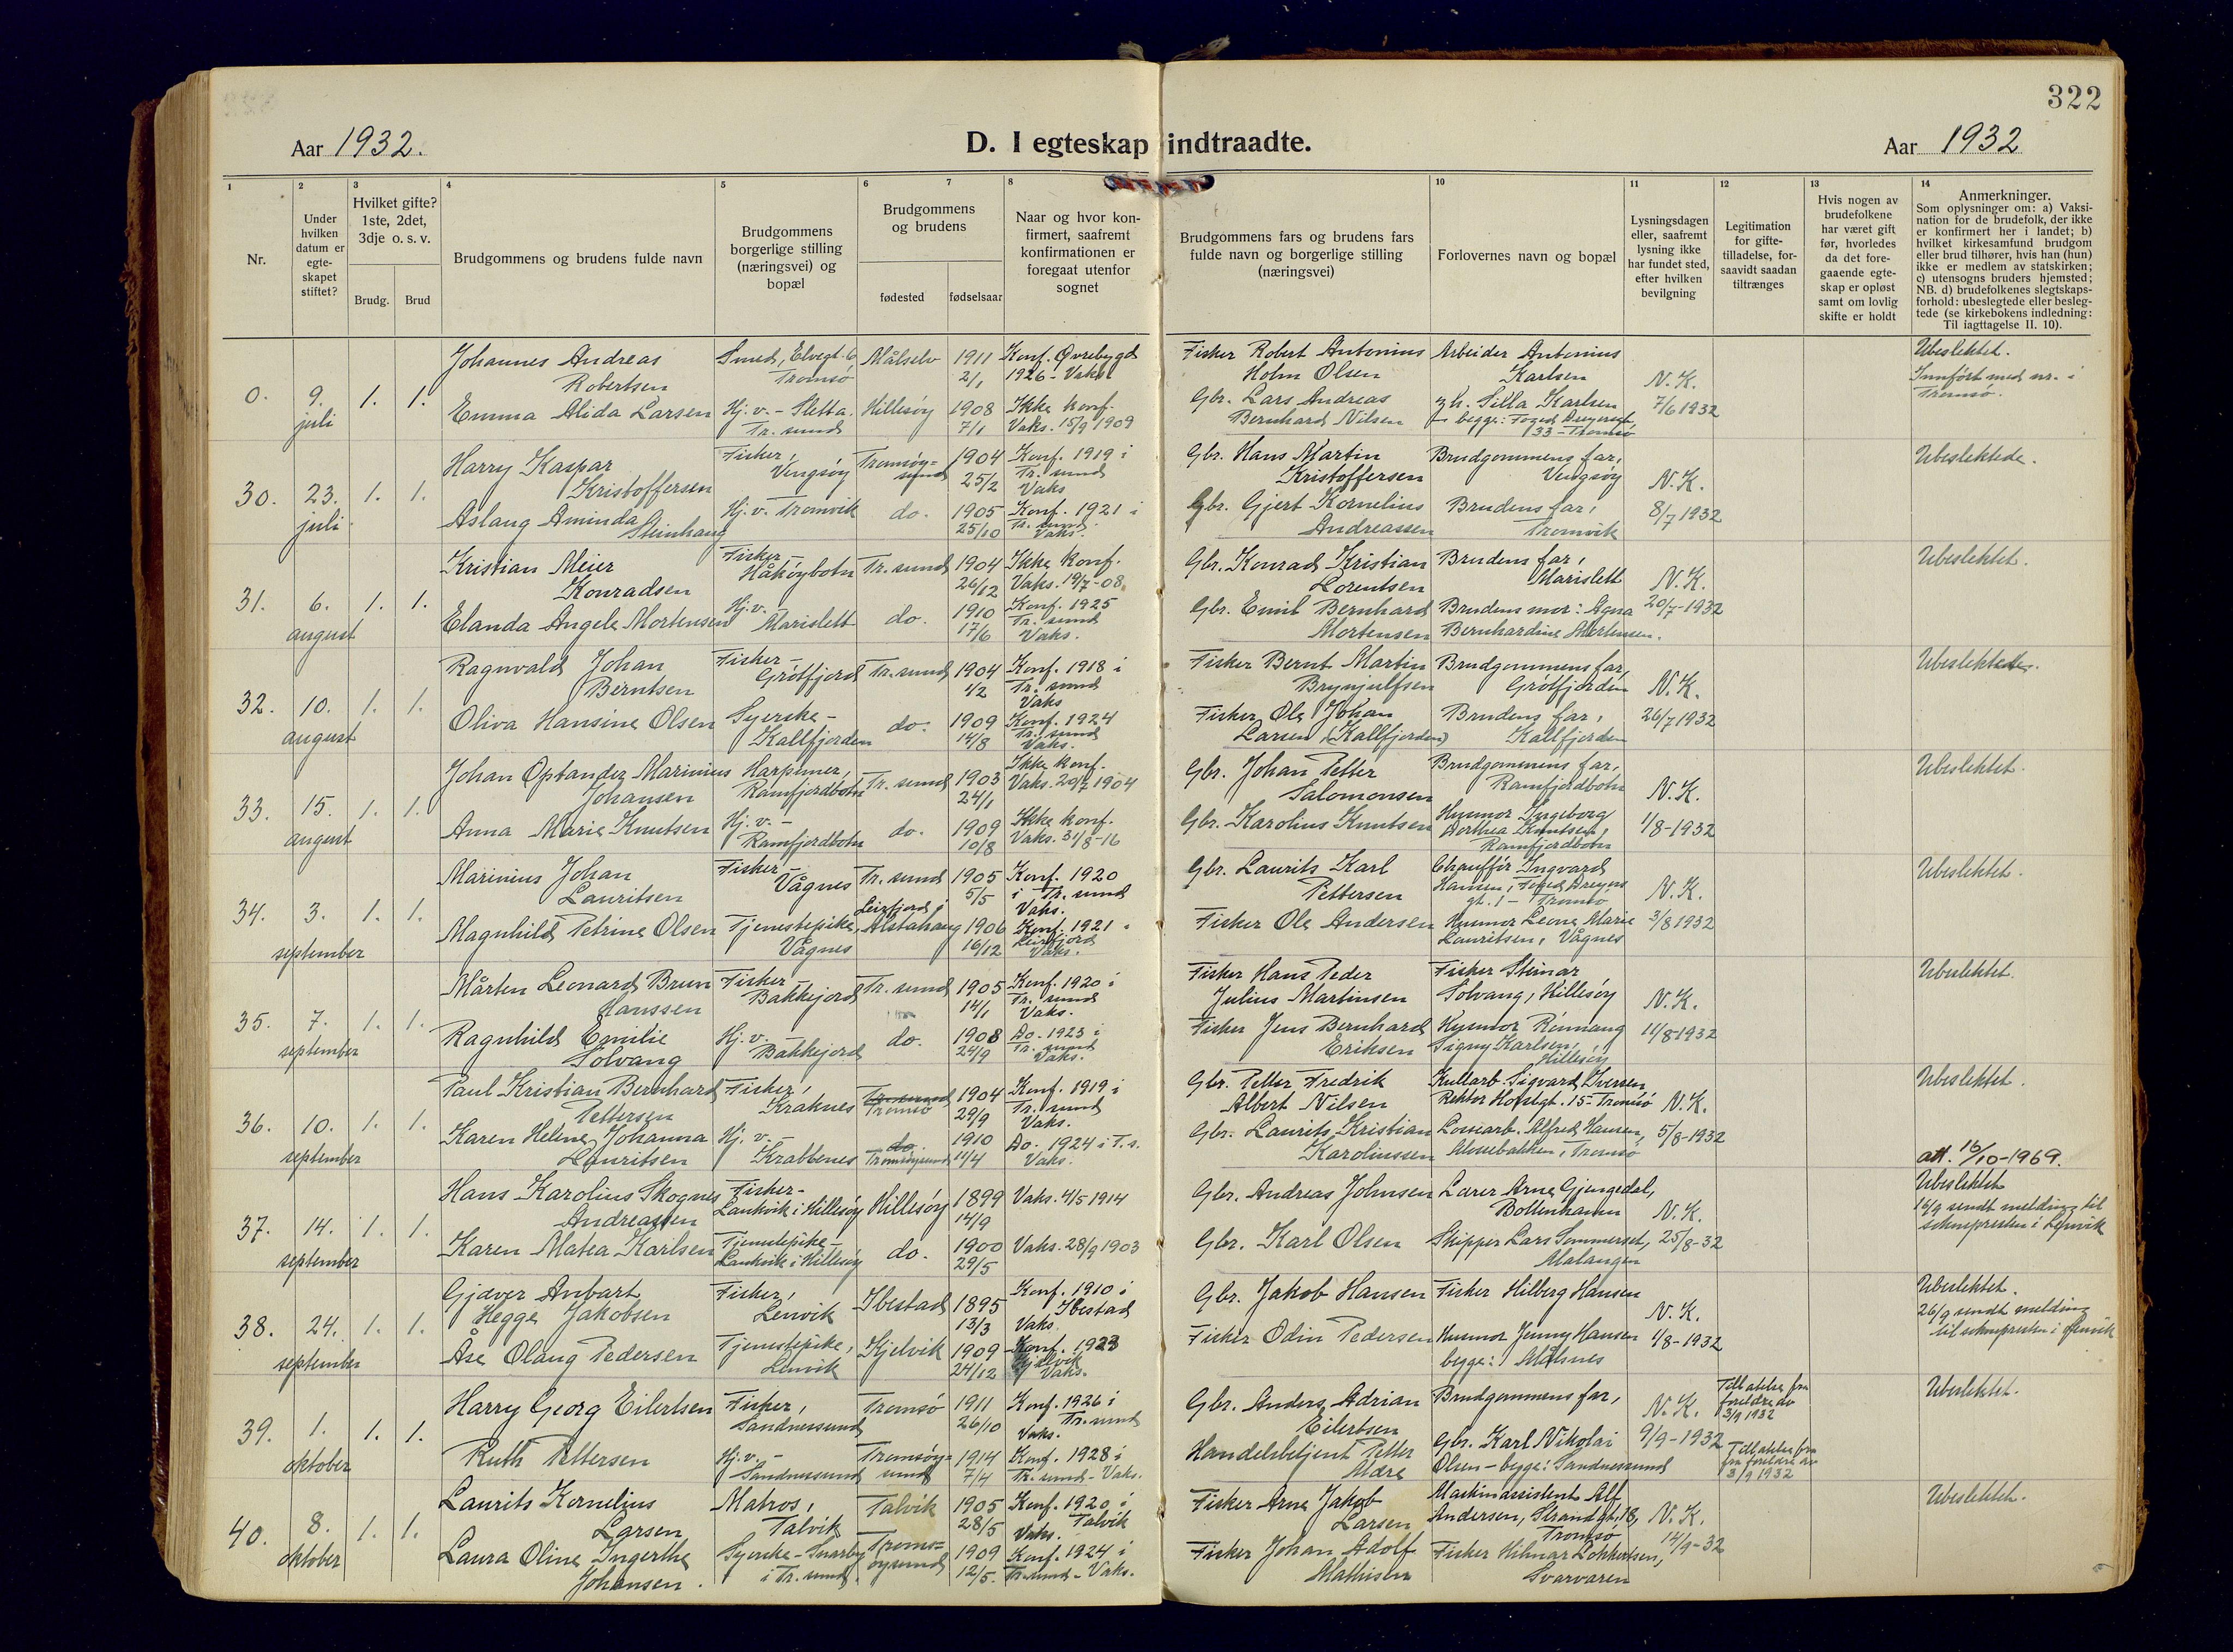 322
Aar 1932.
D. I egteskap indtraadte.
Aar 1932
1
2
3
4
5
6
7
8
10
11
12
13
14
Nr.
Under
hvilken
datum er
egte-
skapet
stiftet?
Hvilket gifte?
1ste, 2det,
3dje o. s. v.
Brudg.
Brud
Brudgommens og brudens fulde navn
Brudgommens
borgerlige stilling
(næringsvei) og
bopæl
Brudgommens
og brudens
fødested
fødselsaar
Naar og hvor kon-
firmert, saafremt
konfirmationen er
foregaat utenfor
sognet
Brudgommens fars og brudens fars
fulde navn og borgerlige stilling
(næringsvei)
Forlovernes navn og bopæl
Lysningsdagen
eller, saafremt
lysning ikke
har fundet sted,
efter hvilken
bevilgning
Legitimation
for gifte-
tilladelse, for-
saavidt saadan
tiltrænges
Hvis nogen av
brudefolkene
har været gift
før, hvorledes
da det fore-
gaaende egte-
skap er opløst
samt om lovlig
skifte er holdt
Anmerkninger.
Som oplysninger om: a) Vaksi-
nation for de brudefolk, der ikke
er konfirmert her i landet; b)
hvilket kirkesamfund brudgom
eller brud tilhører, hvis han (hun)
ikke er medlem av statskirken;
c) utensogns bruders hjemsted;
NB. d) brudefolkenes slegtskaps-
forhold: ubeslegtede eller besleg-
tede (se kirkebokens indledning:
Til iagttagelse II. 10).
0.
9.
juli
1.
1.
Johannes Andreas
Robertsen
Smed, Elvegt. 6
Tromsö
Målselv
1911
2/1
Konf. Øvrebygd
1926 - Vaks.
Fisker Robert Antonius
Holm Olsen
Arbeider Antonius
Karlsen
N. K.
7/6 1932
Ubeslektet.
Innført med nr. i
Tromsö.
Emma Alida Larsen
Hj. v. - Sletta.
Tr. sund
Hillesöy
1908
7/1
Ikke konf.
Vaks. 15/9 1909
Gbr. Lars Andreas
Bernhard Nilsen
Silla Karlsen
begge: Foged Dreyersgt.
33 - Tromsö
30.
23.
juli
1.
1.
Harry Kaspar
Kristoffersen
Fisker,
Vengsöy
Tromsöy=
sund
1904
25/2
Konf. 1919 i
Tr. sund
Vaks
Gbr. Hans Martin
Kristoffersen
Brudgommens far,
Vengsöy
N. K.
8/7 1932
Ubeslektede.
Aslaug Aminda
Steinhaug
Hj. v. Tromvik
do.
1905
25/10
Konf. 1921 i
Tr. sund.
Vaks.
Gbr. Gjert Kornelius
Andreassen
Brudens far,
Tromvik
31.
6.
august
1.
1.
Kristian Meier
Konradsen
Fisker -
Håköybotn
Tr. sund
1904
26/12
Ikke konf.
Vaks. 19/7-08.
Gbr. Konrad Kristian
Lorentsen
Brudens far,
Marislett
N. K.
20/7-1932
Ubeslektet.
Elanda Angele Mortensen
Hj. v.
Marislett
do.
1910
17/6
Konf. 1925
Tr. sund
Vaks.
Gbr. Emil Bernhard
Mortensen
Brudens mor: Agna
Bernhardine Mortensen.
32.
10.
august
1.
1.
Ragnvald Johan
Berntsen
Fisker -
Grötfjord
Tr. sund
1904
1/2
Konf. 1918 i
Tr. sund
Vaks
Fisker Bernt Martin
Brynjulfsen
Brudgommens far,
Grötfjorden
N. K.
26/7 1932
Ubeslektede.
Oliva Hansine Olsen
Syerske -
Kallfjorden
do.
1909
14/8
Konf. 1924
Tr. sund
Vaks.
Fisker Ole Johan
Larsen (Kallfjorden)
Brudens far,
Kallfjorden
33.
15.
august
1.
1.
Johan Optander Marinius
Johansen
Harpuner,
Ramfjordbotn
Tr. sund
1903
24/1
Ikke konf.
Vaks. 20/7 1904
Gbr. Johan Petter
Salomonsen
Brudgommens far,
Ramfjordbotn
N. K.
1/8-1932
Ubeslektet.
Anna Marie Knutsen
Hj. v. -
Ramfjordbotn
do.
1909
10/8
Ikke konf.
Vaks. 31/8-16
Gbr. Karolius Knutsen
Husmor Ingeborg
Dorthea Knutsen,
Ramfjordbotn
34.
3.
september
1.
1.
Marinius Johan
Lauritsen
Fisker -
Vågnes
Tr. sund
1905
5/5
Konf. 1920
i Tr. sund
Vaks.
Gbr. Laurits Karl
Pettersen
Chauffør Ingvard
Hansen, Foged Dreyers
gt. 1 - Tromsö
N. K.
3/8 1932
Ubeslektet.
Magnhild Petrine Olsen
Tjenestepike,
Vågnes
Leirfjord i
Alstahaug
1906
16/12
Konf. 1921 i
Leirfjord
Vaks.
Fisker Ole Andersen
Husmor Leona Marie
Lauritsen, Vågnes
35.
7.
september
1.
1.
Mårten Leonard Brun
Hanssen
Fisker -
Bakkejord
Tr. sund
1905
14/1
Konf. 1920 i
Tr. sund
Vaks.
Fisker Hans Peder
Julius Martinsen
Fisker Steinar
Solvang, Hillesöy
N. K.
11/8-1932
Ubeslektet.
Ragnhild Emilie
Solvang
Hj. v. -
Bakkejord
do.
1908
24/9
Do. 1923 i
Tr. sund
Vaks.
Fisker Jens Bernhard
Eriksen
Husmor Rönnaug
Signy Karlsen,
Hillesöy
36.
10.
september
1.
1.
Paul Kristian Bernhard
Pettersen
Fisker,
Kraknes
Tr. sund
Tromsö
1904
29/9
Konf. 1919 i
Tr. sund
Vaks.
Gbr. Petter Fredrik
Albert Nilsen
Kullarb. Sigvard Iversen
Rektor Horstgt. 15 - Tromsö
N. K.
5/8-1932
Ubeslektet.
Karen Helene Johanna
Lauritsen
Hj. v. -
Krabbenes
do.
Tromsöysund
1910
11/4
Do. 1924 i T. s.
Vaks.
Gbr. Laurits Kristian
Karolinssen
Losearb. Alfred Hansen,
Tromsö
att. 16/10-1969.
37.
14.
september
1.
1.
Hans Karolius Skognes
Andreassen
Fisker -
Lankvik i Hillesöy
Hillesöy
1899
14/9
Vaks. 4/5 1914
Gbr. Andreas Johnsen
Lærer Arne Gjengedal,
Bottenhamn
N. K.
25/8-32
Ubeslektet
16/9 sendt melding til
soknepresten i Lenvik
Karen Matea Karlsen
Tjenestepike -
Lankvik i Hillesöy
do.
1900
29/5
Vaks. 28/9 1903
Gbr. Karl Olsen
Skipper Lars Sommerset,
Malangen
38.
24.
september
1.
1.
Gjæver Anbart
Hegge Jakobsen
Fisker,
Lenvik
Ibestad
1895
13/3
Konf. 1910 i
Ibestad
Vaks.
Gbr. Jakob Hansen
Fisker Hilberg Hansen
N. K.
1/8-1932
Ubeslektet.
26/9 sendt melding
til soknepresten i Lenvik
Åse Olaug Pedersen
Tjenestepike,
Lenvik
Kjelvik
1909
24/12
Konf. 1923
Kjelvik
Vaks.
Fisker Odin Pedersen
Husmor Jenny Hansen
begge: Målsnes
39.
1.
oktober
1.
1.
Harry Georg Eilertsen
Fisker,
Sandnessund
Tromsö
1911
26/10
Konf. 1926 i
Tr. sund
Vaks.
Gbr. Anders Adrian
Eilertsen
Brudgommens far,
N. K.
9/9-1932
Tillatelse fra
foreldre av
3/9 1932
Ubeslektet.
Ruth Pettersen
Hj. v. -
Sandnessund
Tromsöy=
sund
1914
7/4
Konf. 1928 i
Tr. sund - Vaks.
Handelsbetjent Petter
Mære
Gbr. Karl Nikolai
Olsen - begge: Sandnessund
Tillatelse fra
foreldre av
3/9 1932
40.
8.
oktober
1.
1.
Laurits Kornelius
Larsen
Matros,
Talvik
Talvik
1905
28/5
Konf. 1920 i
Talvik
Vaks.
Fisker Arne Jakob
Larsen
Maskinassistent Alf
Andersen, Strandgt. 18,
Tromsö
N. K.
14/9-32
Ubeslektet.
Laura Oline Ingerthe
Johansen.
Syerske - Snarby
i Tr. sund.
Troms=
öysund
1909
12/5.
Konf. 1924 i
Tr. sund - Vaks.
Fisker Johan Adolf
Mathisen
Fisker Hilmar Lokkertsen,
Svarvaren